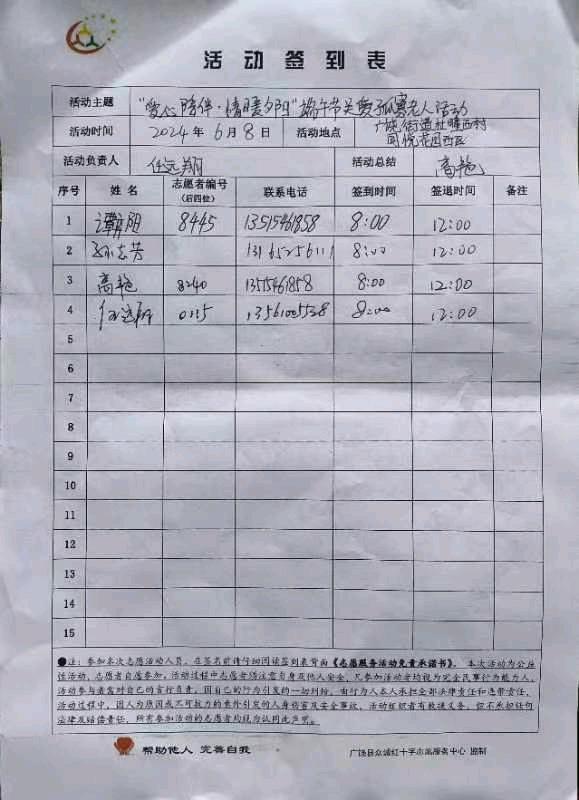 活动签到表
活动主题 "爱心陪伴·情暖夕阳"端午节关爱孤寡老人活动
活动时间 2024年6月8日 活动地点 广饶街道社 西村
同悦花园西区
活动负责人 任远翔 活动总结 高艳
序号 姓名 志愿者编号(后四位) 联系电话 签到时间 签退时间 备注
1 谭阳 8445 13515461858 8:00 12:00
2 孙志芳 13165256111 8:00 12:00
3 高艳 8240 13515461858 8:00 12:00
4 任远翔 0115 13561005528 8:00 12:00
5
6
7
8
9
10
11
12
13
14
15
●注:参加本次志愿活动人员,在签名前请仔细阅读签到表背面《志愿服务活动免责承诺书》。本次活动为公益
性活动,志愿者自愿参加,活动过程中志愿者须注意自身及他人安全,凡参加活动者均视为完全民事行为能力人,
活动参与者需对自己的言行负责,因自己的行为引发的一切纠纷,由行为人本人承担全部法律责任和连带责任。
活动过程中,因人为原因或不可抗力的意外引发的人身伤害及安全事故,活动组织者有救援义务,但不承担任何
法律及赔偿责任,所有参加活动的志愿者均视为认同此声明。
帮助他人 完善自我 广饶县众诚红十字志愿服务中心 监制